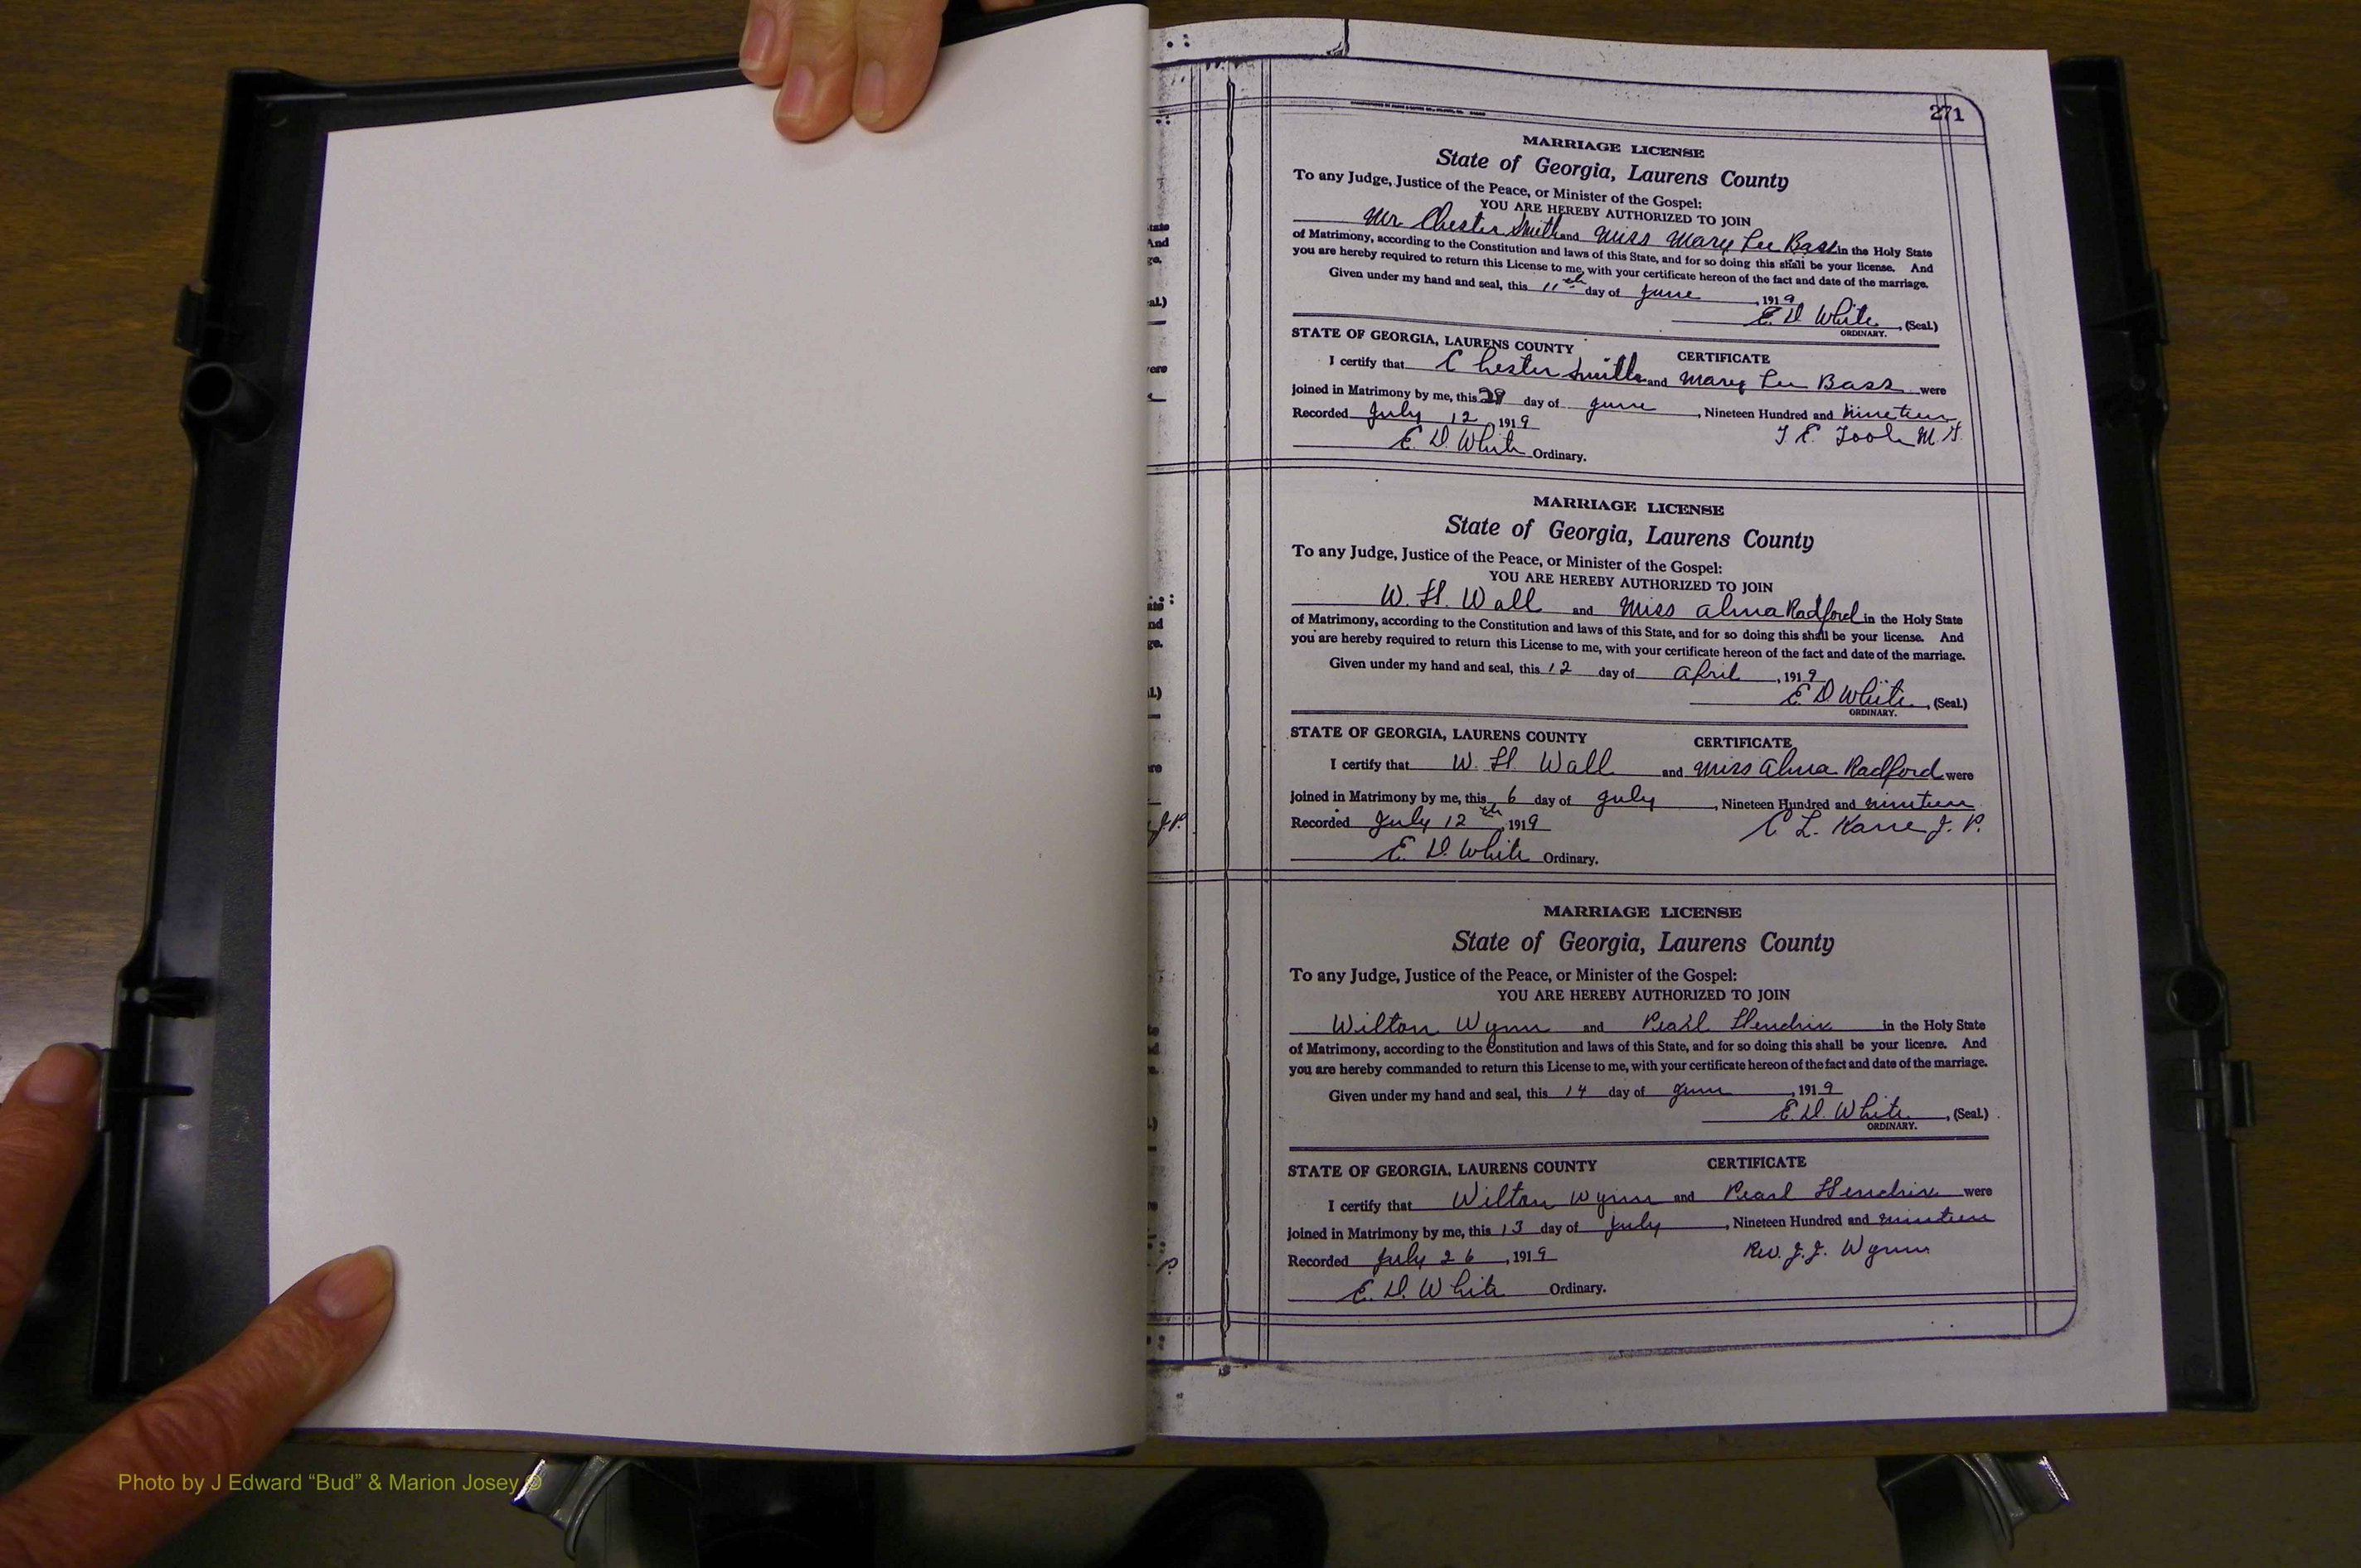 271
MARRIAGE LICENSE
State of Georgia, Laurens County
To any Judge, Justice of the Peace, or Minister of the Gospel:
YOU ARE HEREBY AUTHORIZED TO JOIN
Mr Chester Smith and Miss Mary Lee Bass in the Holy State
of Matrimony, according to the Constitution and laws of this State, and for so doing this shall be your license. And
you are hereby required to return this License to me, with your certificate hereon of the fact and date of the marriage.
Given under my hand and seal, this 11th day of June, 1919
E. D White, (Seal.)
ORDINARY.
STATE OF GEORGIA, LAURENS COUNTY CERTIFICATE
I certify that Chester Smith and Mary Lee Bass were
joined in Matrimony by me, this 29 day of June, Nineteen Hundred and Nineteen
Recorded July 12, 1919 T. E. Toole M. G.
E. D White Ordinary.
MARRIAGE LICENSE
State of Georgia, Laurens County
To any Judge, Justice of the Peace, or Minister of the Gospel:
YOU ARE HEREBY AUTHORIZED TO JOIN
W. H. Wall and Miss Alma Radford in the Holy State
of Matrimony, according to the Constitution and laws of this State, and for so doing this shall be your license. And
you are hereby required to return this License to me, with your certificate hereon of the fact and date of the marriage.
Given under my hand and seal, this 12 day of April, 1919
E. D White, (Seal.)
ORDINARY.
STATE OF GEORGIA, LAURENS COUNTY CERTIFICATE
I certify that W. H. Wall and Miss Alma Radford were
joined in Matrimony by me, this 6 day of July, Nineteen Hundred and nineteen
Recorded July 12th, 1919 C L. J. P.
E. D. White Ordinary.
MARRIAGE LICENSE
State of Georgia, Laurens County
To any Judge, Justice of the Peace, or Minister of the Gospel:
YOU ARE HEREBY AUTHORIZED TO JOIN
Wilton Wynn and Pearl Hendrix in the Holy State
of Matrimony, according to the Constitution and laws of this State, and for so doing this shall be your license. And
you are hereby commanded to return this License to me, with your certificate hereon of the fact and date of the marriage.
Given under my hand and seal, this 14 day of June, 1919
E. D. White, (Seal.)
ORDINARY.
STATE OF GEORGIA, LAURENS COUNTY CERTIFICATE
I certify that Wilton Wynn and Pearl Hendrix were
joined in Matrimony by me, this 13 day of July, Nineteen Hundred and nineteen
Recorded July 26, 1919 Rev. J. J. Wynn
E. D. White Ordinary.
Photo by J Edward “Bud” & Marion Josey ©